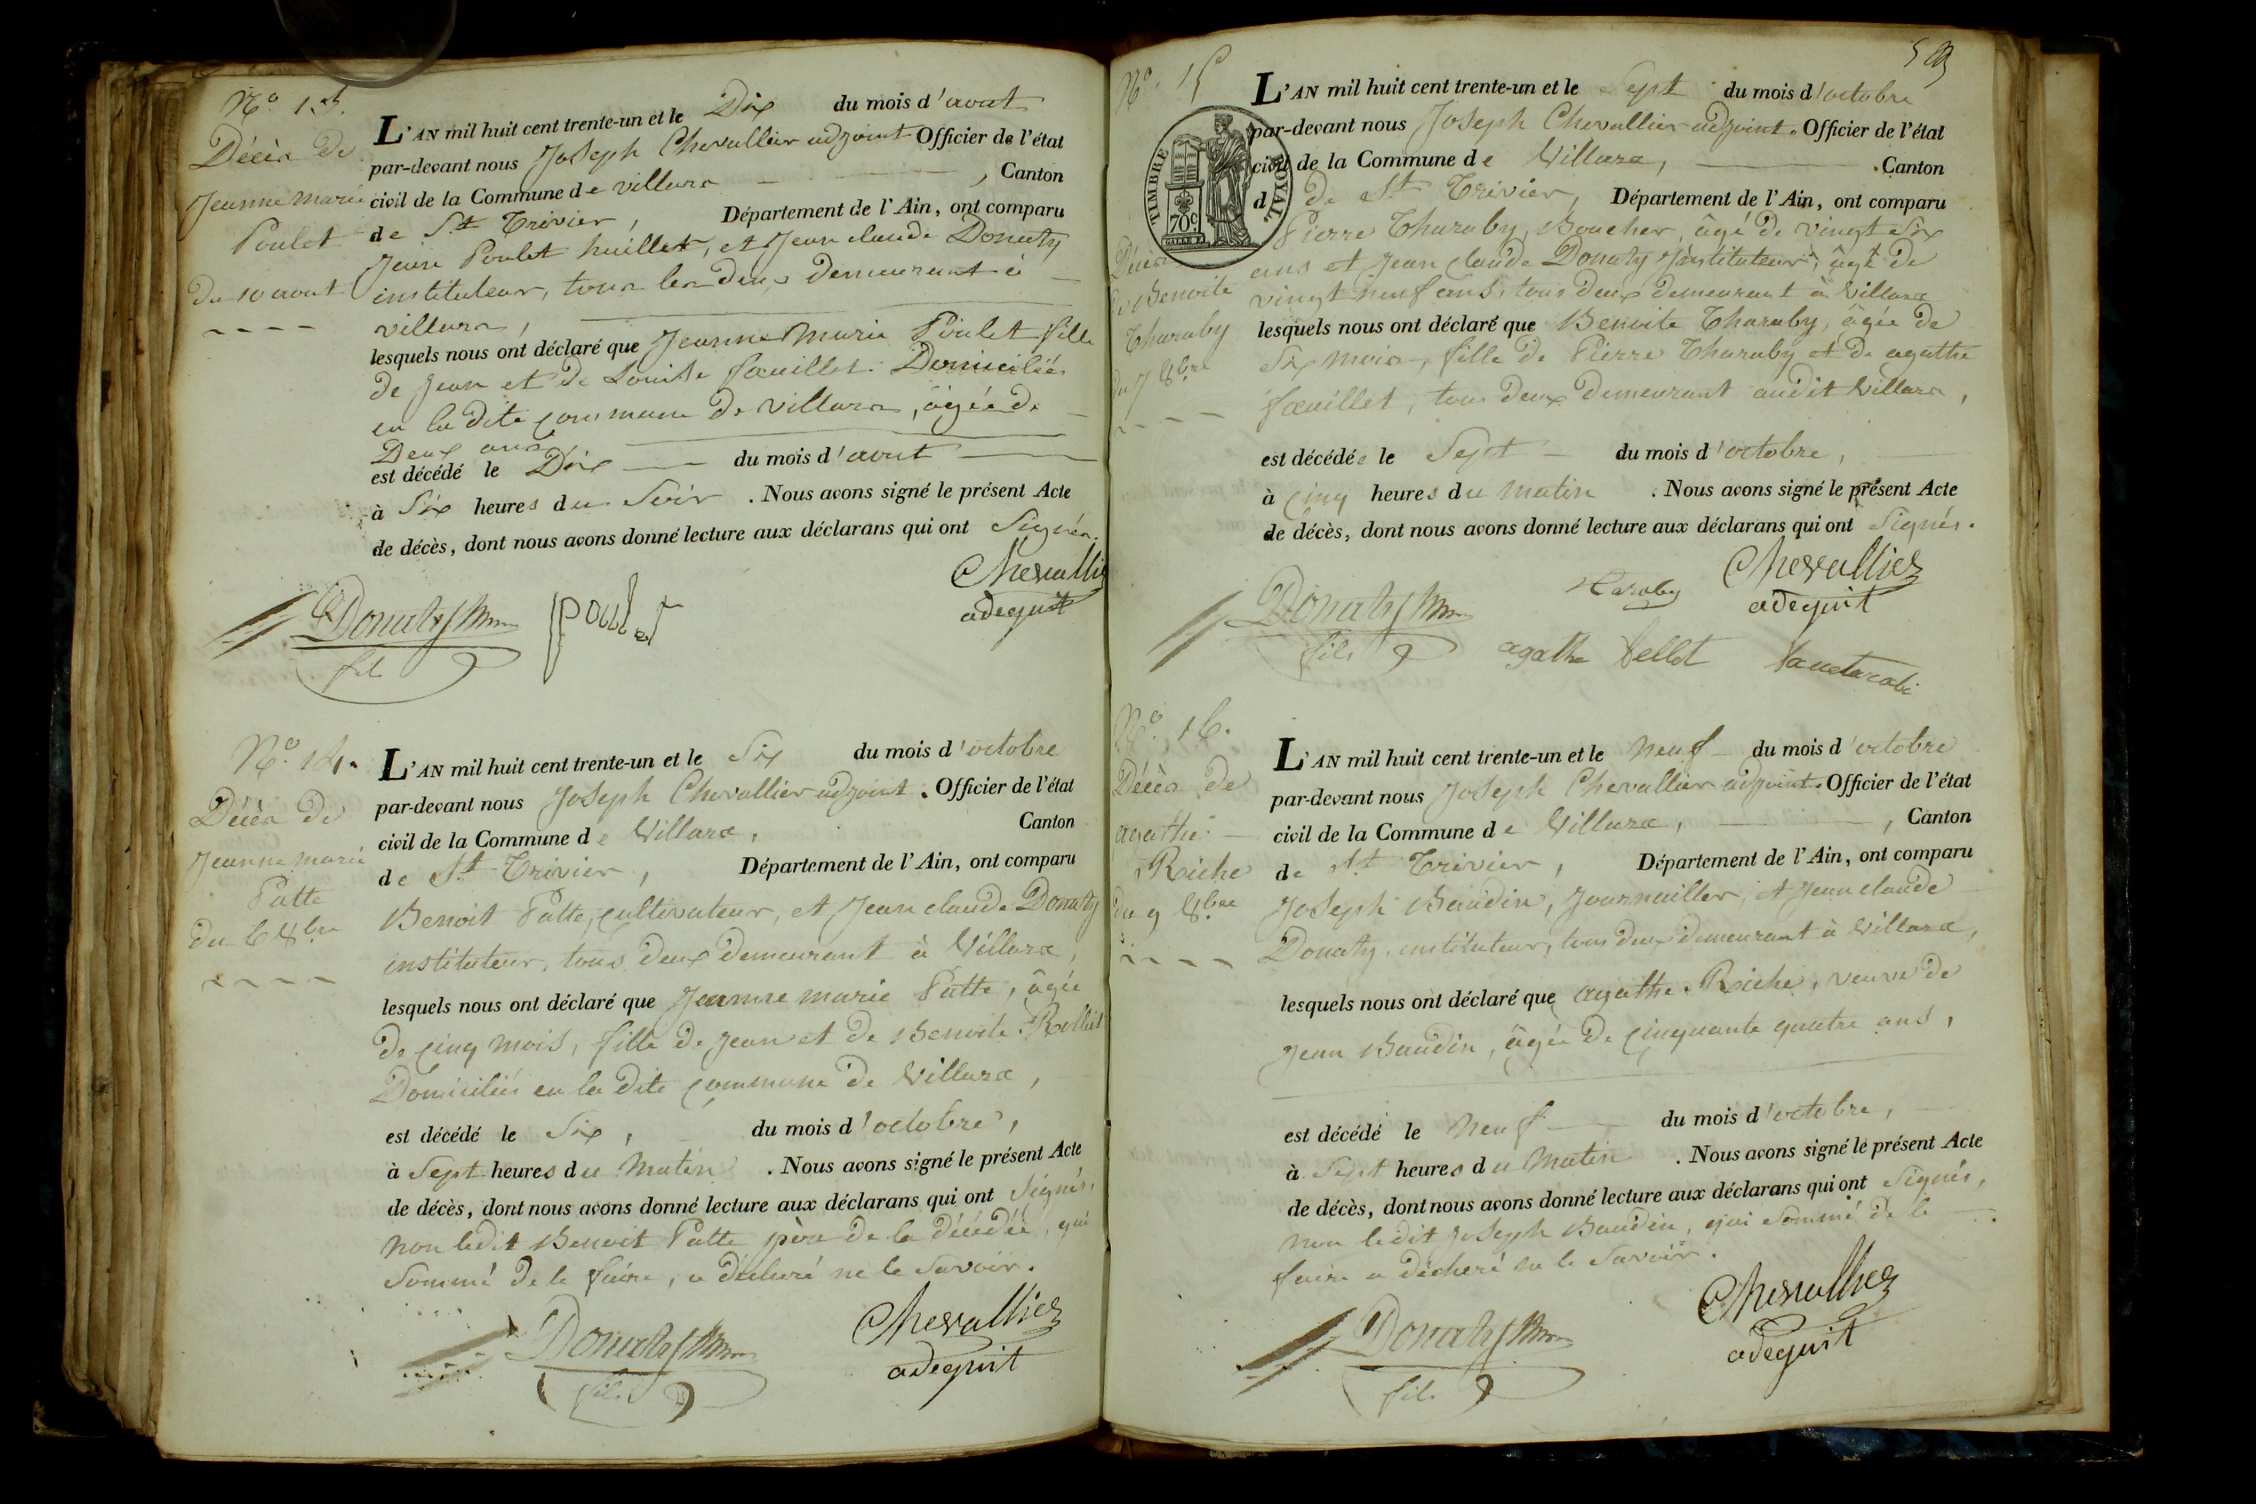 N.o 13.
Décès de
Jeanne Marie
Poulet
du 10 aout
L'AN mil huit cent trente-un et le Dix du mois d'aout
par-devant nous Joseph Chevallier adjoint Officier de l'état
civil de la Commune de villars , Canton
de St. Trivier, Département de l'Ain, ont comparu
Jean Poulet huillier, et Jean claude Donaty
instituteur, tous les deux demeurant à
villars,
lesquels nous ont déclaré que Jeanne Marie Poulet fille
de Jean et de Louise fœuillet Domiciliés
en la dite commune de villars, âgée de
Deux ans
est décédé le Dix du mois d'aout
à Six heures du Soir . Nous avons signé le présent Acte
de décès, dont nous avons donné lecture aux déclarans qui ont Signés.
Chevallie
Donaty
poulet
fils
N.o 14.
Décès de
Jeanne marie
Patte
du 6 8bre
L'AN mil huit cent trente-un et le Six du mois d'octobre
par-devant nous Joseph Chevallier adjoint. Officier de l'état
civil de la Commune de Villars, Canton
de St. Trivier, Département de l'Ain, ont comparu
Benoit Patte, cultivateur, et Jean claude Donaty
instituteur, tous deux demeurant à Villars,
lesquels nous ont déclaré que Jeanne marie Patte, âgée
de cinq mois, fille de Jean et de Benoite Rolliet
Domiciliés en la dite commune de Villars,
est décédé le Six, du mois d'octobre,
à Sept heures du Matin . Nous avons signé le présent Acte
de décès, dont nous avons donné lecture aux déclarans qui ont Signés,
non ledit Benoit Patte père de la décédée, qui
Sommé de le faire, a déclaré ne le Savoir.
Donaty
Chevallier
fils
N.o 15
TIMBRE ROYAL.
70c
Décès
de Benoite
Tharaby
du 7 8bre
L'AN mil huit cent trente-un et le Sept du mois d'octobre
par-devant nous Joseph Chevallier adjoint. Officier de l'état
civil de la Commune de Villars, . Canton
d de St. Trivier, Département de l'Ain, ont comparu
Pierre Tharaby, Boucher, âgé de vingt Six
ans et Jean claude Donaty instituteur, âgé de
vingt neuf ans, tous deux demeurant à Villars
lesquels nous ont déclaré que Benoite Tharaby, âgée de
Six mois, fille de Pierre Tharaby et de agathe
fœuillet, tous deux demeurant audit Villars,
est décédée le Sept du mois d'octobre,
à cinq heures du matin . Nous avons signé le présent Acte
de décès, dont nous avons donné lecture aux déclarans qui ont Signés.
Chevallier
Donaty
fils
agathe
N.o 16.
Décès de
agathe
Riche
du 9 8bre
L'AN mil huit cent trente-un et le neuf du mois d'octobre
par-devant nous Joseph Chevallier adjoint. Officier de l'état
civil de la Commune de Villars, , Canton
de St. Trivier, Département de l'Ain, ont comparu
Joseph Baudin, Journaillier, et Jean claude
Donaty, instituteur, tous deux demeurant à Villars,
lesquels nous ont déclaré que agathe Riche, veuve de
Jean Baudin, âgée de cinquante quatre ans,
est décédé le neuf du mois d'octobre,
à Sept heures du Matin . Nous avons signé le présent Acte
de décès, dont nous avons donné lecture aux déclarans qui ont Signés,
non ledit Joseph Baudin, qui sommé de le
faire a déclaré ne le Savoir.
Chevallier
Donaty
fils